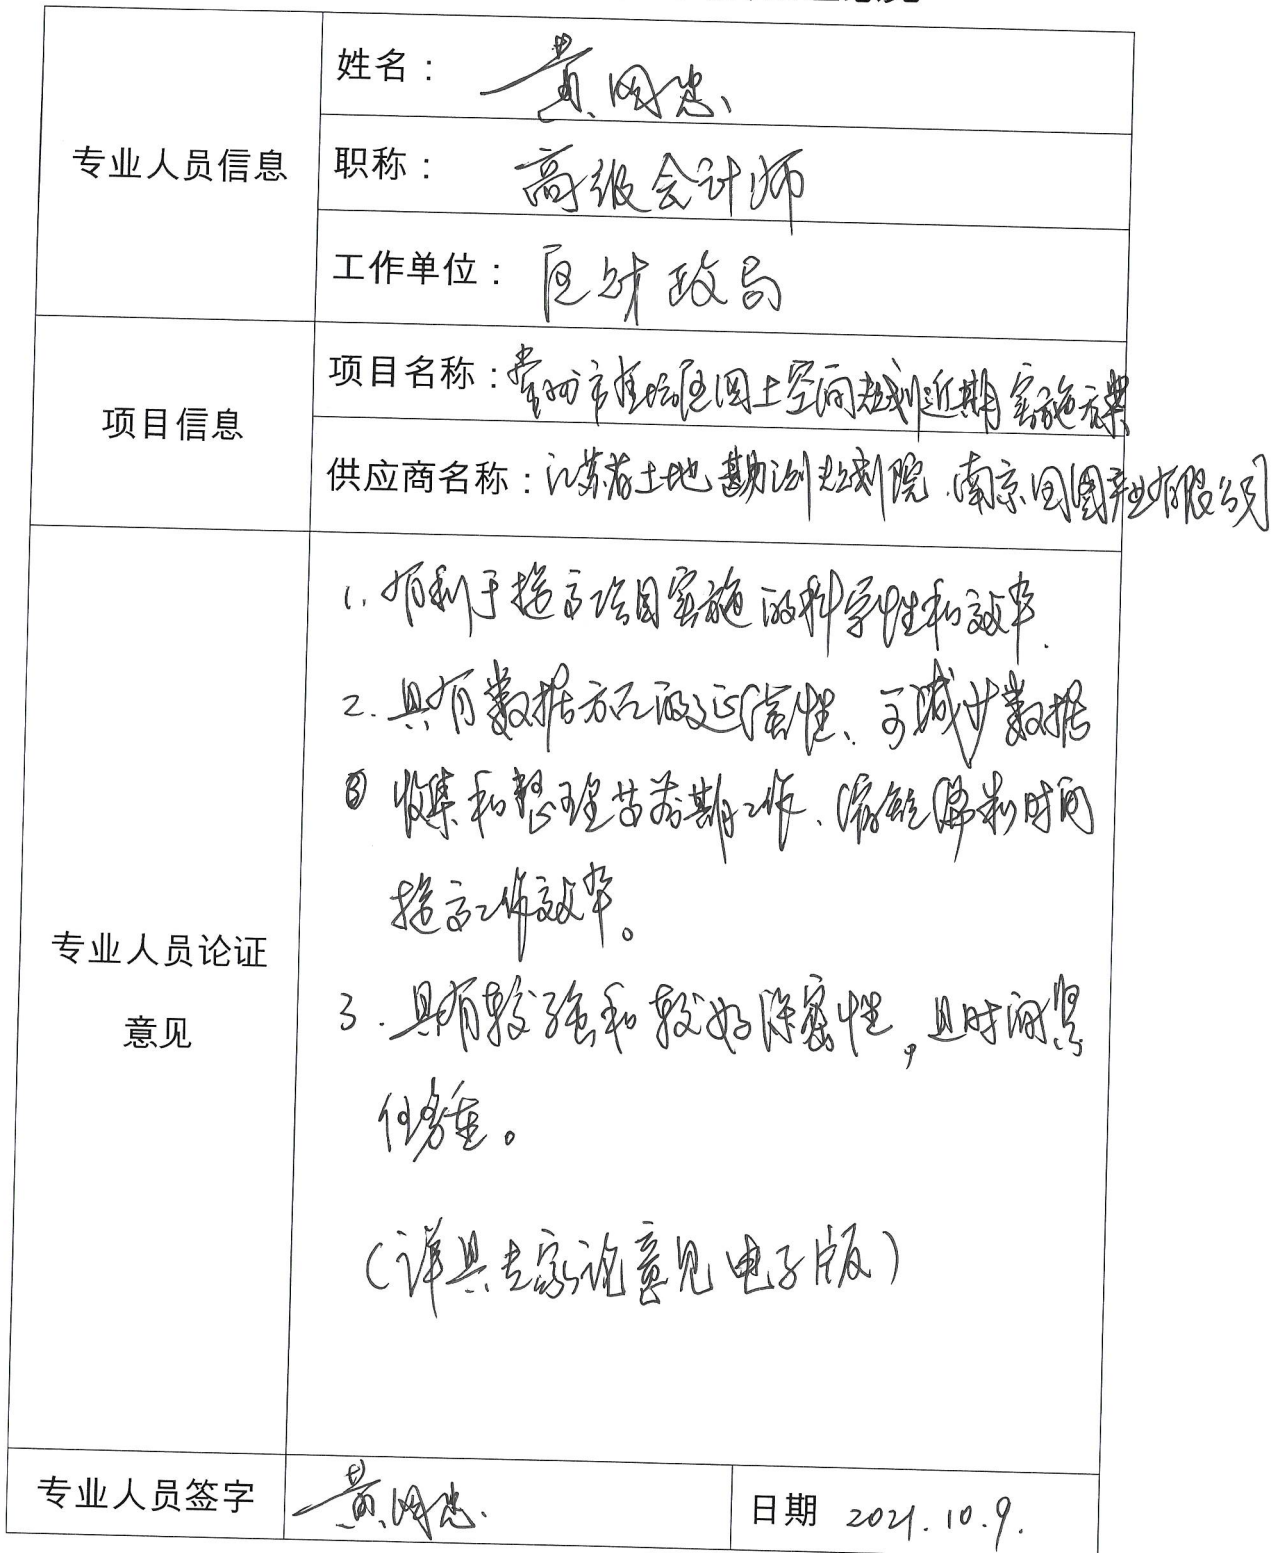 姓名：黄网忠
专业人员信息
职称：高级会计师
工作单位：区财政局
项目信息
项目名称：常州市金坛区国土空间规划近期实施方案
供应商名称：江苏省土地勘测规划院、南京国图产业有限公司
1. 有利于提高项目实施的科学性和效率.
2. 具有数据方面的延续性、可减少数据
收集和整理等前期工作、缩短编制时间
提高工作效率。
3. 具有较强和较好保密性，且时间紧
任务重。
专业人员论证
意见
（详具专家论意见电子版）
专业人员签字 黄网忠 日期 2021.10.9.